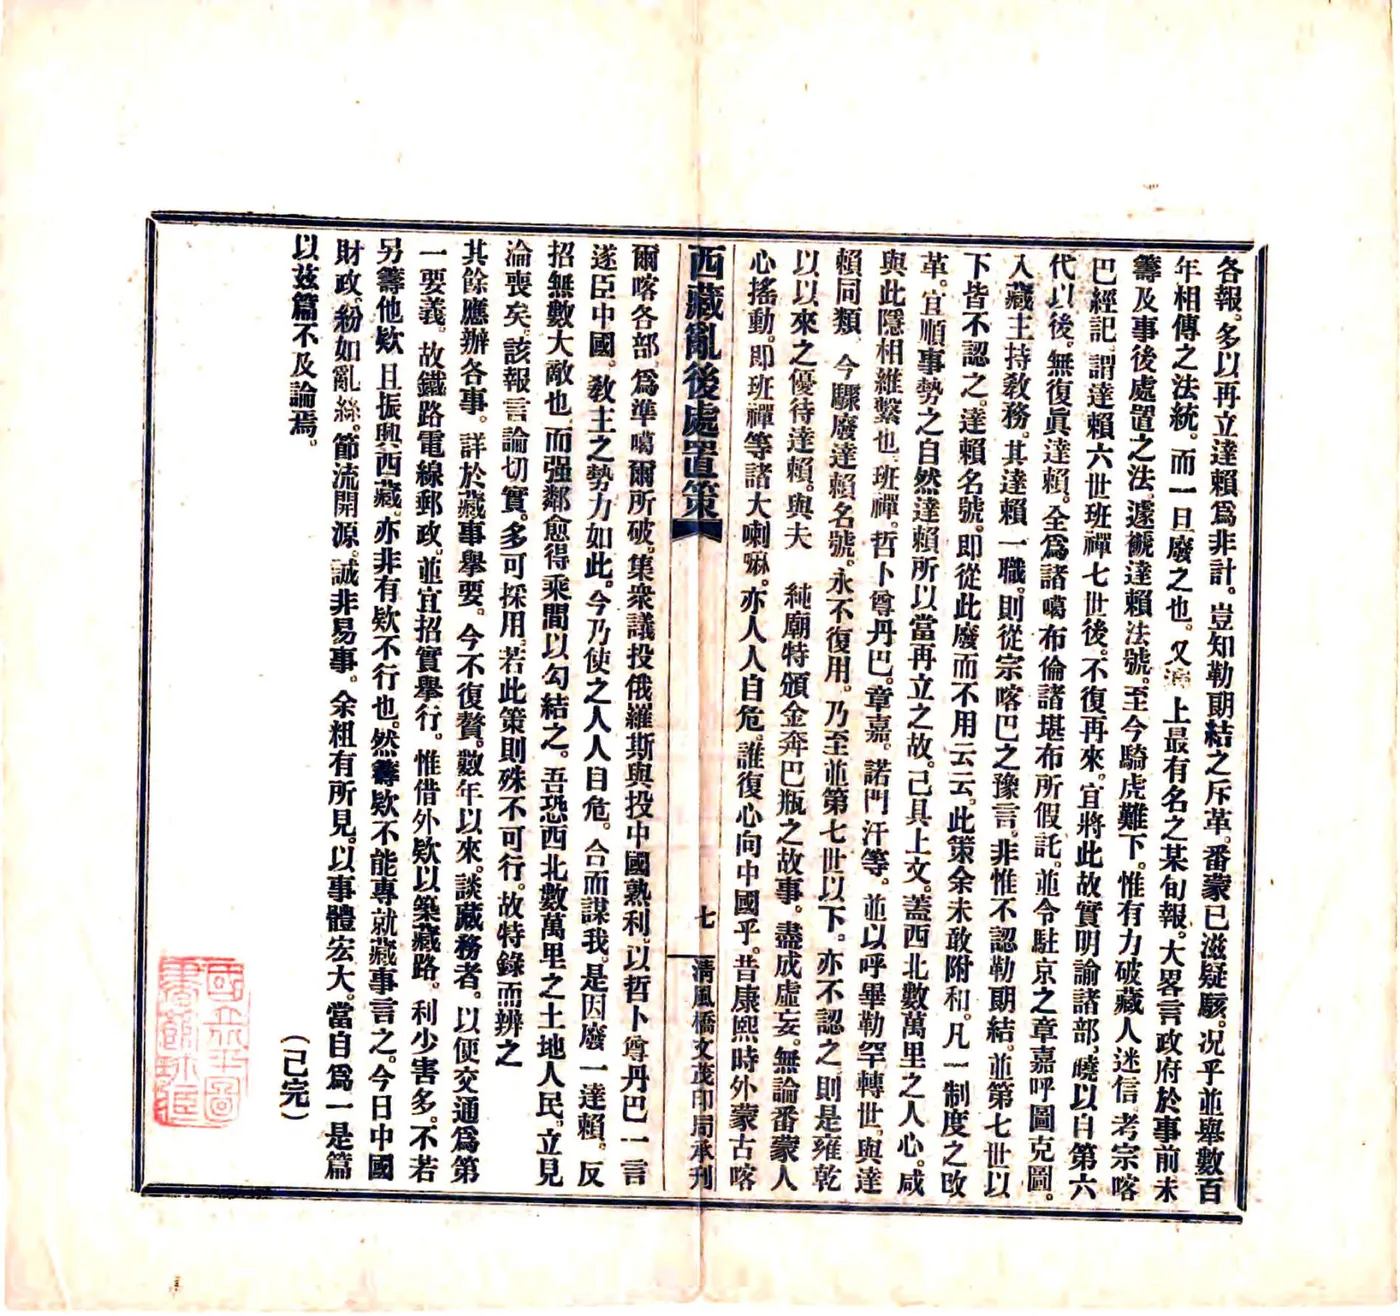 各報。多以再立達賴爲非計。豈知勒朗結之斥革。番蒙已滋疑駭。况乎並舉數百
年相傳之法統。而一旦廢之也。又 上最有名之某旬報。大畧言政府於事前未
籌及事後處置之法。遽褫達賴法號。至今騎虎難下。惟有力破藏人迷信。考宗喀
巴經記。謂達賴六世班禪七世後。不復再來。宜將此故實明諭諸部。曉以自第六
代以後。無復眞達賴。全爲諸噶布倫諸堪布所假託。並令駐京之章嘉呼圖克圖。
入藏主持敎務。其達賴一職。則從宗喀巴之豫言。非惟不認勒朗結。並第七世以
下皆不認之。達賴名號。即從此廢而不用云云。此策余未敢附和。凡一制度之改
革。宜順事勢之自然達賴所以當再立之故。已具上文。蓋西北數萬里之人心。咸
與此隱相維繫也。班禪。哲卜尊丹巴。章嘉。諾門汗等。並以呼畢勒罕轉世。與達
賴同類。今驟廢達賴名號。永不復用。乃至並第七世以下。亦不認之。則是雍乾
以以來之優待達賴。與夫 純廟特頒金奔巴瓶之故事。盡成虛妄。無論番蒙人
心搖動。即班禪等諸大喇嘛。亦人人自危。誰復心向中國乎。昔康熙時外蒙古喀
西藏亂後處置策
七
淸風橋文茂印局承刋
爾喀各部。爲準噶爾所破。集衆議投俄羅斯與投中國熟利。以哲卜尊丹巴一言
遂臣中國。敎主之勢力如此。今乃使之人人自危。合而謀我。是因廢一達賴。反
招無數大敵也。而强鄰愈得乘間以勾結之。吾恐西北數萬里之土地人民。立見
淪喪矣。該報言論切實。多可採用。若此策則殊不可行。故特錄而辨之
其餘應辦各事。詳於藏事舉要。今不復贅。數年以來。談藏務者。以便交通爲第
一要義。故鐵路電線郵政。並宜招實舉行。惟借外欵以築藏路。利少害多。不若
另籌他欵。且振興西藏。亦非有欵不行也。然籌欵不能專就藏事言之。今日中國
財政。紛如亂絲。節流開源。誠非易事。余粗有所見。以事體宏大。當自爲一是篇
以茲篇不及論焉。
（已完）